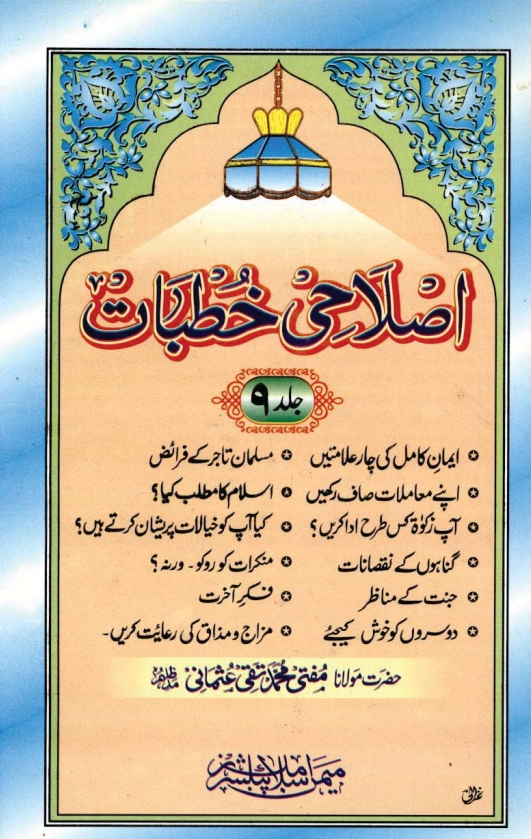 اصلاحی خطبات
جلد ۹
ایمان کامل کی چار علامتیں ۞ مسلمان تاجر کے فرائض ۞
اپنے معاملات صاف رکھیں ۞ اسلام کا مطلب کیا؟ ۞
آپ زکوٰۃ کس طرح ادا کریں؟ ۞ کیا آپ کو خیالات پریشان کرتے ہیں؟ ۞
گناہوں کے نقصانات ۞ منکرات کو روکو۔ ورنہ؟ ۞
جنت کے مناظر ۞ فکرِ آخرت ۞
دوسروں کو خوش کیجئے ۞ مزاج و مذاق کی رعایت کریں۔ ۞
حضرت مولانا مفتی محمد تقی عثمانی مدظلہم
میمن اسلامک پبلشرز